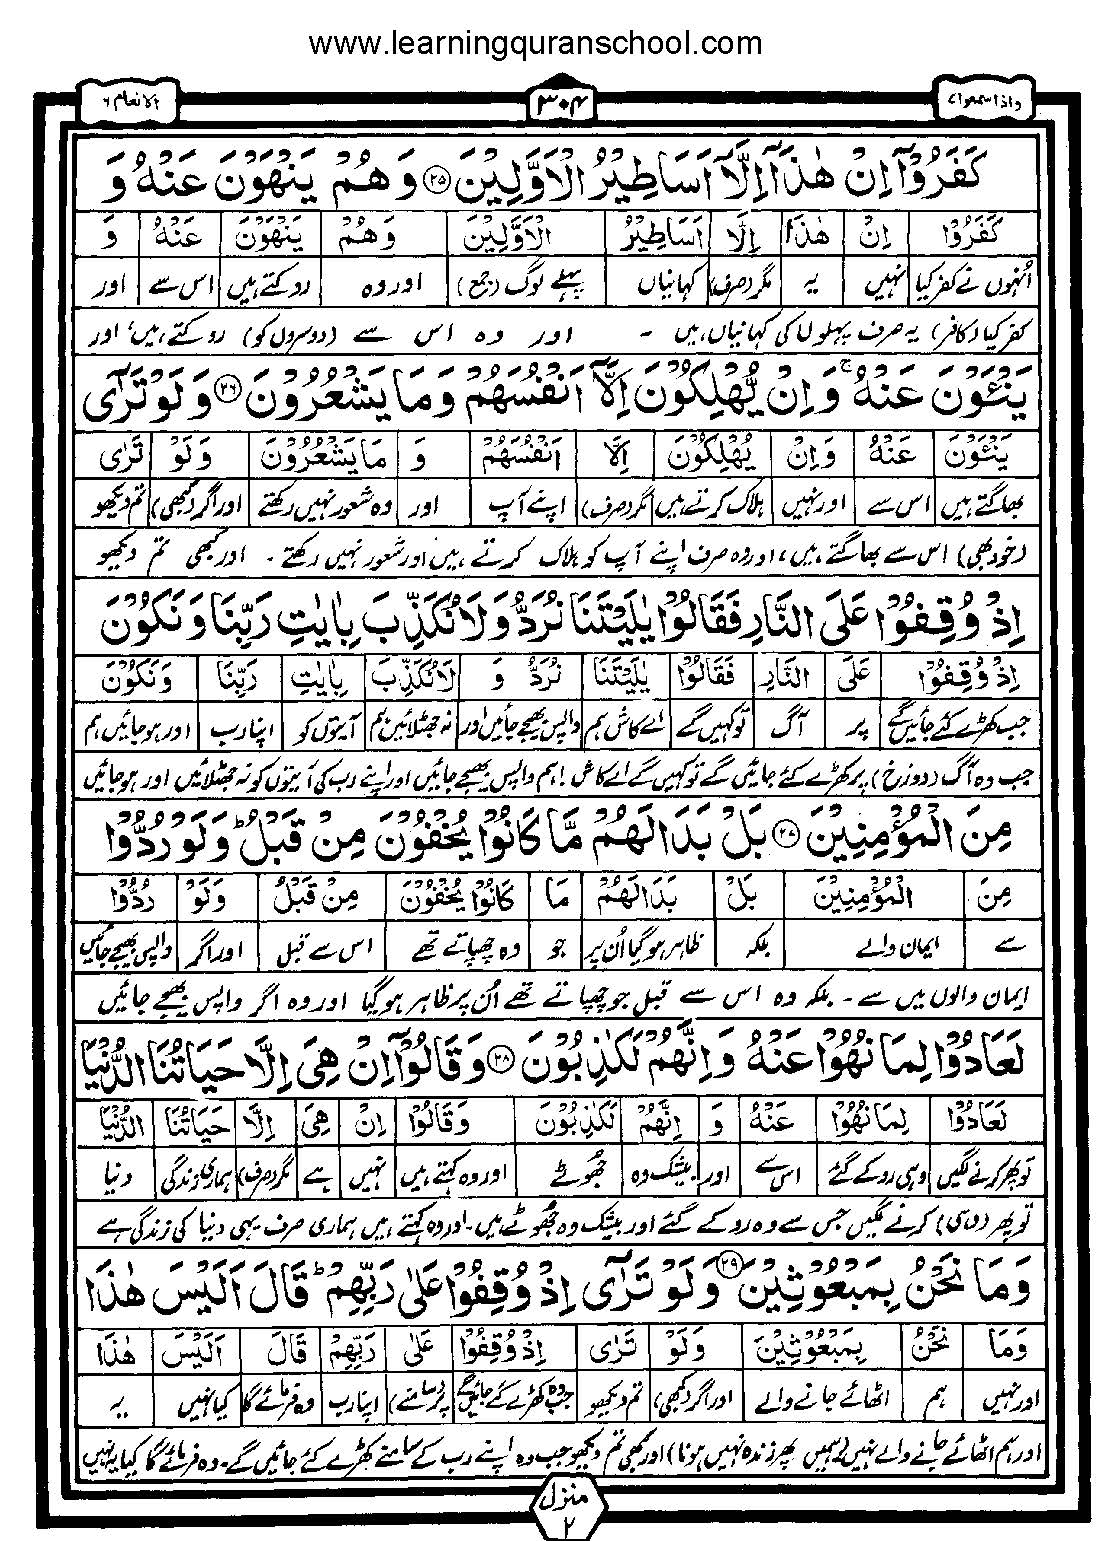 www.learningquranschool.com
واذا سمعوا ۷
۳۰۴
الانعام ۶
كَفَرُوْٓا اِنْ هٰذَآ اِلَّآ اَسَاطِيْرُ الْاَوَّلِيْنَ ﴿۲۵﴾ وَهُمْ يَنْهَوْنَ عَنْهُ وَ
كَفَرُوْا اِنْ هٰذَا اِلَّا اَسَاطِيْرُ الْاَوَّلِيْنَ وَهُمْ يَنْهَوْنَ عَنْهُ وَ
اُنہوں نے کفر کیا نہیں یہ مگر (صرف) کہانیاں پہلے لوگ (جمع) اور وہ روکتے ہیں اس سے اور
کفر کیا (کافر) یہ صرف پہلوں کی کہانیاں ہیں ۔ اور وہ اس سے (دوسروں کو) روکتے ہیں، اور
يَنْـَٔوْنَ عَنْهُ ۚ وَاِنْ يُّهْلِكُوْنَ اِلَّآ اَنْفُسَهُمْ وَمَا يَشْعُرُوْنَ ﴿۲۶﴾ وَلَوْ تَرٰٓى
يَنْـَٔوْنَ عَنْهُ وَاِنْ يُّهْلِكُوْنَ اِلَّا اَنْفُسَهُمْ وَ مَا يَشْعُرُوْنَ وَلَوْ تَرٰى
بھاگتے ہیں اس سے اور نہیں ہلاک کرتے ہیں مگر (صرف) اپنے آپ اور وہ شعور نہیں رکھتے اور اگر (کبھی) تم دیکھو
(خود بھی) اس سے بھاگتے ہیں، اور وہ صرف اپنے آپ کو ہلاک کرتے ہیں اور شعور نہیں رکھتے ۔ اور کبھی تم دیکھو
اِذْ وُقِفُوْا عَلَى النَّارِ فَقَالُوْا يٰلَيْتَنَا نُرَدُّ وَلَا نُكَذِّبَ بِاٰيٰتِ رَبِّنَا وَنَكُوْنَ
اِذْ وُقِفُوْا عَلَى النَّارِ فَقَالُوْا يٰلَيْتَنَا نُرَدُّ وَ لَا نُكَذِّبَ بِاٰيٰتِ رَبِّنَا وَنَكُوْنَ
جب کھڑے کئے جائیں گے پر آگ تو کہیں گے اے کاش ہم واپس بھیجے جائیں اور نہ جھٹلائیں ہم آیتوں کو اپنا رب اور ہو جائیں ہم
جب وہ آگ (دوزخ) پر کھڑے کئے جائیں گے تو کہیں گے اے کاش! ہم واپس بھیجے جائیں اور اپنے رب کی آیتوں کو نہ جھٹلائیں اور ہو جائیں
مِنَ الْمُؤْمِنِيْنَ ﴿۲۷﴾ بَلْ بَدَا لَهُمْ مَّا كَانُوْا يُخْفُوْنَ مِنْ قَبْلُ ؕ وَلَوْ رُدُّوْا
مِنَ الْمُؤْمِنِيْنَ بَلْ بَدَا لَهُمْ مَا كَانُوْا يُخْفُوْنَ مِنْ قَبْلُ وَلَوْ رُدُّوْا
سے ایمان والے بلکہ ظاہر ہو گیا اُن پر جو وہ چھپاتے تھے اس سے قبل اور اگر واپس بھیجے جائیں
ایمان والوں میں سے ۔ بلکہ وہ اس سے قبل جو چھپاتے تھے اُن پر ظاہر ہو گیا اور وہ اگر واپس بھیجے جائیں
لَعَادُوْا لِمَا نُهُوْا عَنْهُ وَاِنَّهُمْ لَكٰذِبُوْنَ ﴿۲۸﴾ وَقَالُوْٓا اِنْ هِىَ اِلَّا حَيَاتُنَا الدُّنْيَا
لَعَادُوْا لِمَا نُهُوْا عَنْهُ وَ اِنَّهُمْ لَكٰذِبُوْنَ وَقَالُوْا اِنْ هِىَ اِلَّا حَيَاتُنَا الدُّنْيَا
تو پھر کرنے لگیں وہی روکے گئے اس سے اور بیشک وہ جھوٹے اور وہ کہتے ہیں نہیں ہے مگر (صرف) ہماری زندگی دنیا
تو پھر (وہی) کرنے لگیں جس سے وہ روکے گئے اور بیشک وہ جھوٹے ہیں۔ اور وہ کہتے ہیں ہماری صرف یہی دنیا کی زندگی ہے
وَمَا نَحْنُ بِمَبْعُوْثِيْنَ ﴿۲۹﴾ وَلَوْ تَرٰٓى اِذْ وُقِفُوْا عَلٰى رَبِّهِمْ ؕ قَالَ اَلَيْسَ هٰذَا
وَمَا نَحْنُ بِمَبْعُوْثِيْنَ وَلَوْ تَرٰى اِذْ وُقِفُوْا عَلٰى رَبِّهِمْ قَالَ اَلَيْسَ هٰذَا
اور نہیں ہم اٹھائے جانے والے اور اگر (کبھی) تم دیکھو جب وہ کھڑے کئے جائیں گے پر (سامنے) اپنا رب وہ فرمائے گا کیا نہیں یہ
اور ہم اٹھائے جانے والے نہیں (ہمیں پھر زندہ نہیں ہونا) اور کبھی تم دیکھو جب وہ اپنے رب کے سامنے کھڑے کئے جائیں گے۔ وہ فرمائے گا کیا یہ نہیں
منزل ۲